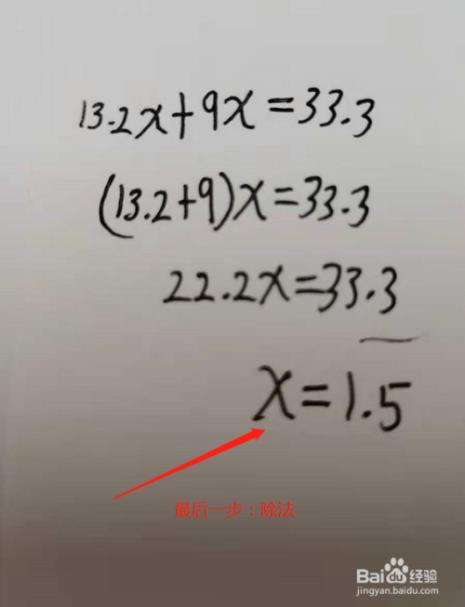 13.2x+9x=33.3
(13.2+9)x=33.3
22.2x=33.3
x=1.5
最后一步：除法
Bai百度经验
jingyan.baidu.com